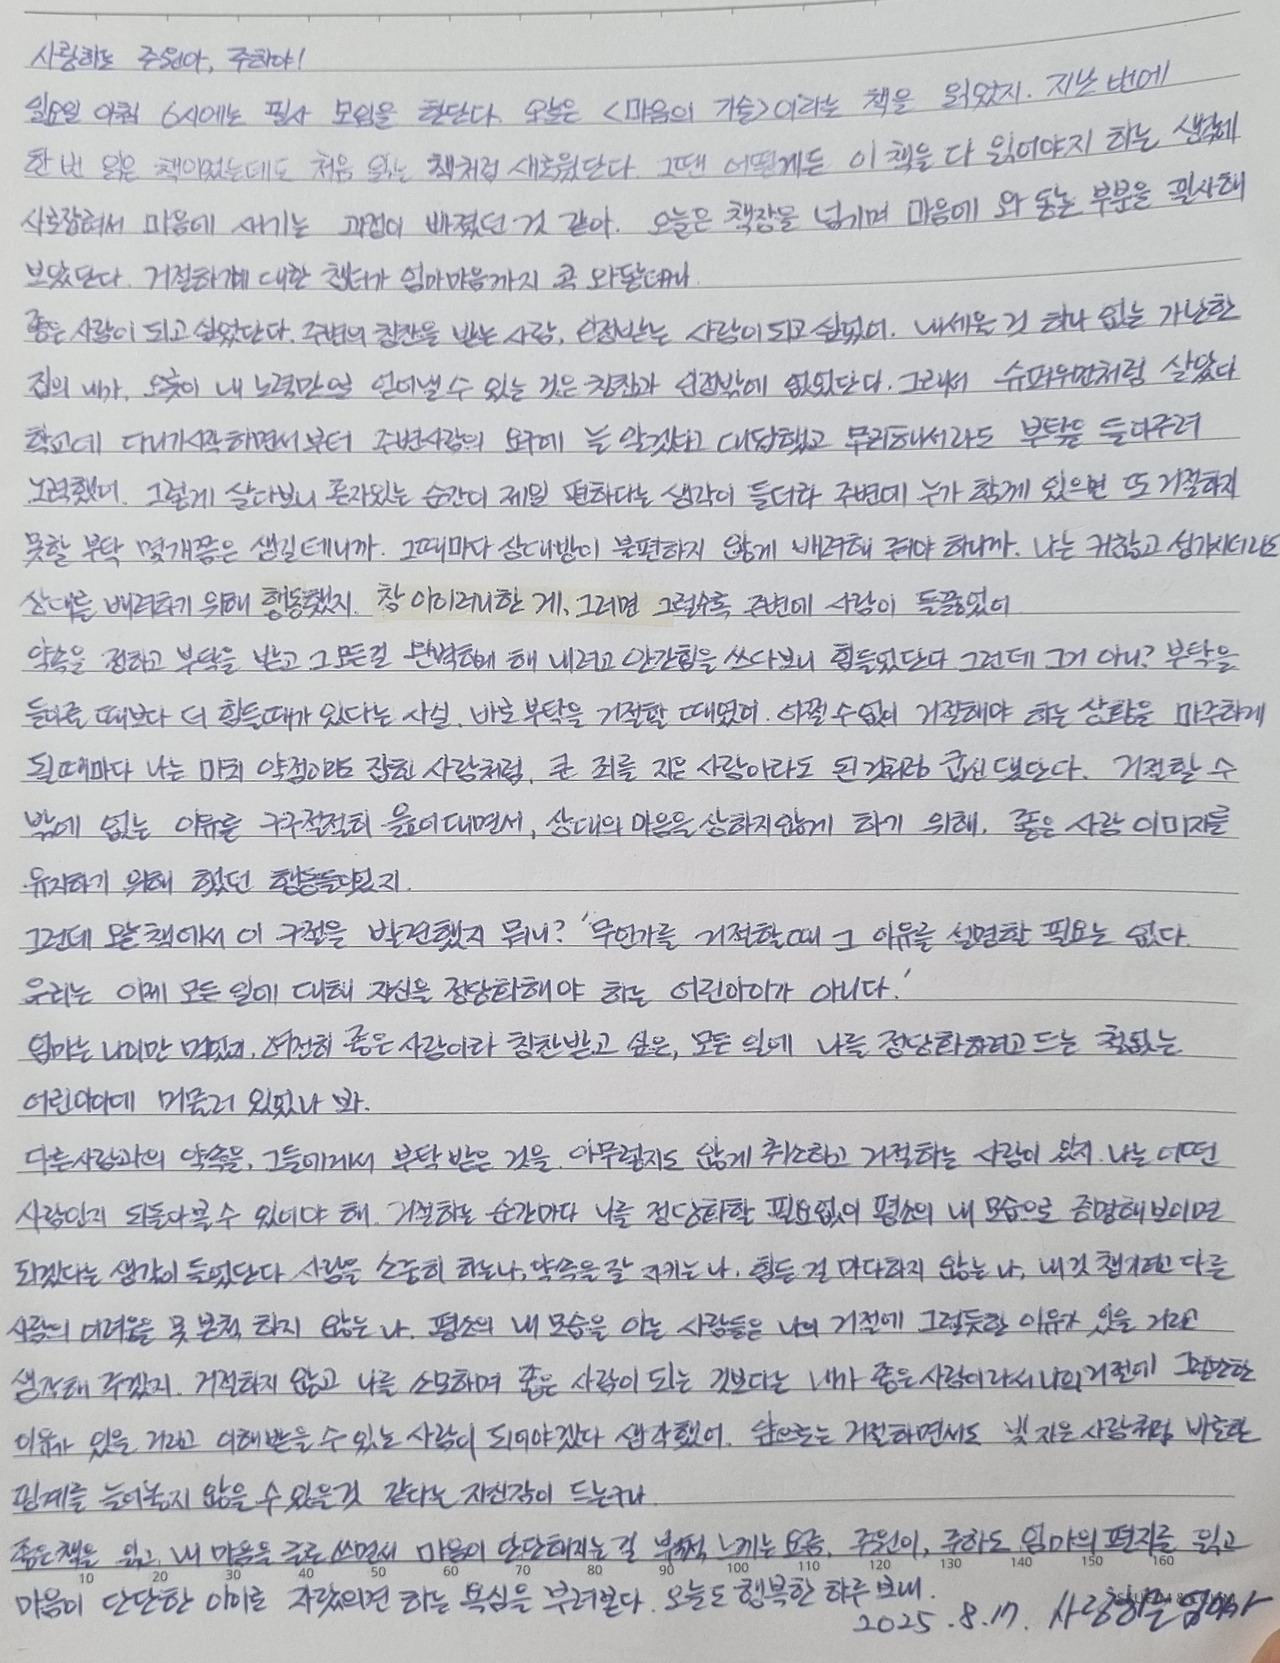 사랑하는 주원아, 주하야!
일요일 아침 6시에는 필사 모임을 한단다. 오늘은 <마음의 기술>이라는 책을 읽었지. 지난 번에
한 번 읽은 책이었는데도 처음 읽는 책처럼 새로웠단다. 그땐 어떻게든 이 책을 다 읽어야지 하는 생각에
사로잡혀서 마음에 새기는 과정이 빠졌던 것 같아. 오늘은 책장을 넘기며 마음에 와 닿는 부분을 필사해
보았단다. 거절하기에 대한 챕터가 엄마마음까지 콕 와닿는구나.
좋은 사람이 되고 싶었단다. 주변의 칭찬을 받는 사람, 인정받는 사람이 되고 싶었어. 내세울 것 하나 없는 가난한
집의 내가, 오롯이 내 노력만으로 얻어낼 수 있는 것은 칭찬과 인정밖에 없었단다. 그래서 슈퍼우먼처럼 살았다
학교에 다니기 시작하면서부터 주변사람의 요구에 늘 알겠다고 대답했고 무리해서라도 부탁을 들어주려
노력했어. 그렇게 살다보니 혼자있는 순간이 제일 편하다는 생각이 들더라 주변에 누가 함께 있으면 또 거절하지
못할 부탁 몇개쯤은 생길테니까. 그때마다 상대방이 불편하지 않게 배려해 줘야 하니까. 나는 귀찮고 성가시더라도
상대를 배려하기 위해 행동했지. 참 아이러니한 게, 그러면 그럴수록 주변에 사람이 들끓었어
약속을 정하고 부탁을 받고 그 모든걸 완벽하게 해 내려고 안간힘을 쓰다보니 힘들었단다 그런데 그거 아니? 부탁을
들어줄 때보다 더 힘들때가 있다는 사실. 바로 부탁을 거절할 때였어. 어쩔 수 없이 거절해야 하는 상황을 마주하게
될때마다 나는 마치 약점이라도 잡힌 사람처럼, 큰 죄를 지은 사람이라도 된 것처럼 굽신댔단다. 거절할 수
밖에 없는 이유를 구구절절히 읊어대면서, 상대의 마음을 상하지않게 하기 위해. 좋은 사람 이미지를
유지하기 위해 했던 행동들이었지.
그런데 오늘 책에서 이 구절을 발견했지 뭐니? '무언가를 거절할 때 그 이유를 설명할 필요는 없다.
우리는 이제 모든 일에 대해 자신을 정당화해야 하는 어린아이가 아니다.'
엄마는 나이만 먹었지, 여전히 좋은 사람이라 칭찬받고 싶은, 모든 일에 나를 정당화하려고 드는 철없는
어린아이에 머물러 있었나 봐.
다른사람과의 약속을, 그들에게서 부탁 받은 것을 아무렇지도 않게 취소하고 거절하는 사람이 있지. 나는 어떤
사람인지 되돌아볼 수 있어야 해. 거절하는 순간마다 나를 정당화할 필요없이 평소의 내 모습으로 증명해보이면
되겠다는 생각이 들었단다 사람을 소중히 하는 나, 약속을 잘 지키는 나, 힘든 걸 마다하지 않는 나, 내것 챙기려고 다른
사람의 어려움을 못 본척 하지 않는 나. 평소의 내 모습을 아는 사람들은 나의 거절에 그럴듯한 이유가 있을 거라고
생각해 주겠지. 거절하지 않고 나를 소모하며 좋은 사람이 되는 것보다는 내가 좋은사람이라서 나의 거절에 그럴만한
이유가 있을 거라고 이해받을 수 있는 사람이 되어야겠다 생각했어. 앞으로는 거절하면서도 빚 지은 사람처럼 비굴한
핑계를 늘어놓지 않을 수 있을것 같다는 자신감이 드는구나.
좋은책을 읽고, 내 마음을 글로 쓰면서 마음이 단단해지는 걸 부쩍 느끼는 요즘. 주원이, 주하도 엄마의 편지를 읽고
10 20 30 40 50 60 70 80 90 100 110 120 130 140 150 160
마음이 단단한 아이로 자랐으면 하는 욕심을 부려본다. 오늘도 행복한 하루 보내.
2025.8.17. 사랑하는 엄마가